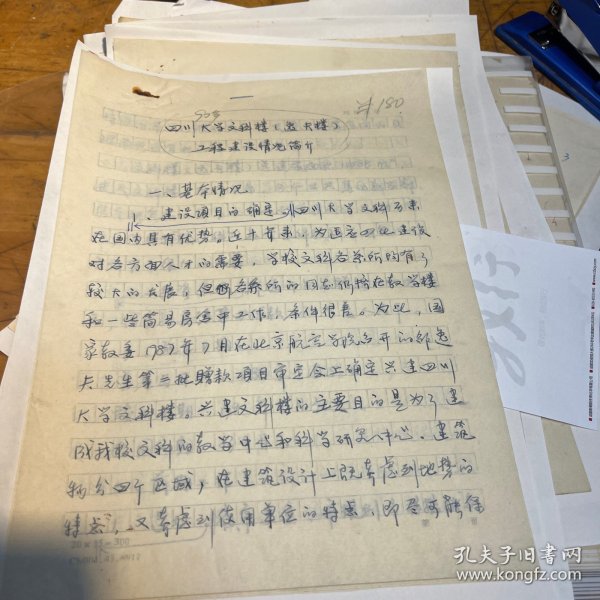 503
180
四川大学文科楼(逸夫楼)
工程建设情况简介
一、基本情况
1. 建设项目的确定。四川大学文科历来
在国内具有优势。近十年来,为适应四化建设
对各方面人才的需要,学校文科各系所均有了
较大的发展,但各系所的同志仍挤在教学楼
和一些简易房屋中工作,条件很差。为此,国
家教委1987年9月在北京航空学院召开的邵逸
夫先生第二批赠款项目审定会上确定兴建四川
大学文科楼。兴建文科楼的主要目的是为了建
成我校文科的教学中心和科学研究中心。建筑
物分四个区域,在建筑设计上既考虑到地势的
特点,又考虑到使用单位的特点,即尽可能保
20×15=300
孔夫子旧书网
www.kongfz.com